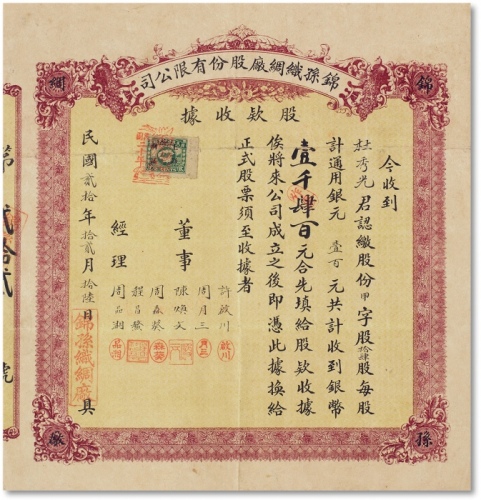 錦孫織綢廠股份有限公司
股款收據
錦
綢
孫
廠
今收到
杜秀光君認繳股份甲字股拾肆股每股
計通用銀元壹百元共計收到銀幣
壹千肆百元合先填給股款收據
俟將來公司成立之後即憑此據換給
正式股票須至收據者
董事
許啟川
周月三
陳煥文
周森葵
程
經理
周品湘
民國貳拾年拾貳月拾陸日
具
錦孫織綢廠
第
貳拾貳
號